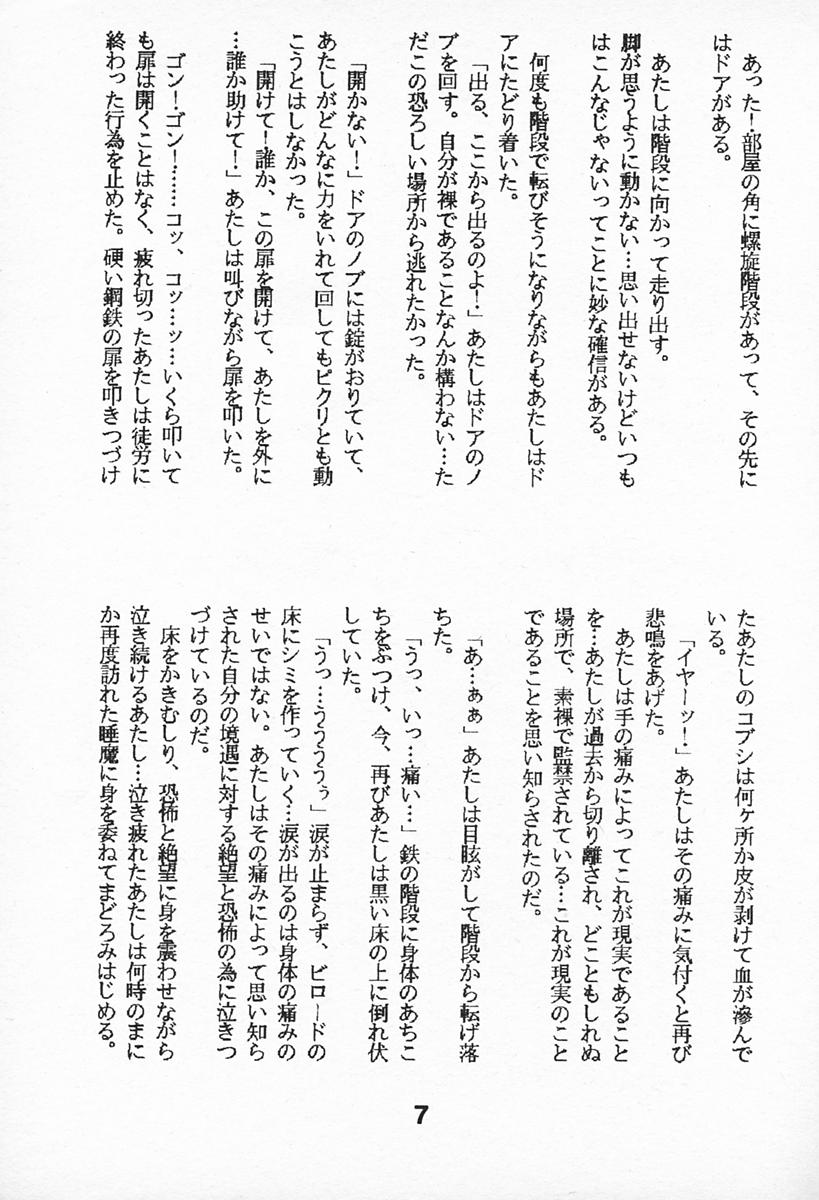 あった！部屋の角に螺旋階段があって、その先に
はドアがある。
あたしは階段に向かって走り出す。
脚が思うように動かない…思い出せないけどいつも
はこんなじゃないってことに妙な確信がある。
何度も階段で転びそうになりながらもあたしはド
アにたどり着いた。
「出る、ここから出るのよ！」あたしはドアのノ
ブを回す。自分が裸であることなんか構わない…た
だこの恐ろしい場所から逃れたかった。
「開かない！」ドアのノブには錠がおりていて、
あたしがどんなに力をいれて回してもピクリとも動
こうとはしなかった。
「開けて！誰か、この扉を開けて、あたしを外に
…誰か助けて！」あたしは叫びながら扉を叩いた。
ゴン！ゴン！……コッ、コッ…ッ…いくら叩いて
も扉は開くことはなく、疲れ切ったあたしは徒労に
終わった行為を止めた。硬い鋼鉄の扉を叩きつづけ
たあたしのコブシは何ヶ所か皮が剥けて血が滲んで
いる。
「イヤーッ！」あたしはその痛みに気付くと再び
悲鳴をあげた。
あたしは手の痛みによってこれが現実であること
を…あたしが過去から切り離され、どこともしれぬ
場所で、素裸で監禁されている…これが現実のこと
であることを思い知らされたのだ。
「あ…ぁぁ」あたしは目眩がして階段から転げ落
ちた。
「うっ、いっ…痛い…」鉄の階段に身体のあちこ
ちをぶつけ、今、再びあたしは黒い床の上に倒れ伏
していた。
「うっ…うううぅ」涙が止まらず、ビロードの
床にシミを作っていく…涙が出るのは身体の痛みの
せいではない。あたしはその痛みによって思い知ら
された自分の境遇に対する絶望と恐怖の為に泣きつ
づけているのだ。
床をかきむしり、恐怖と絶望に身を震わせながら
泣き続けるあたし…泣き疲れたあたしは何時のまに
か再度訪れた睡魔に身を委ねてまどろみはじめる。
7